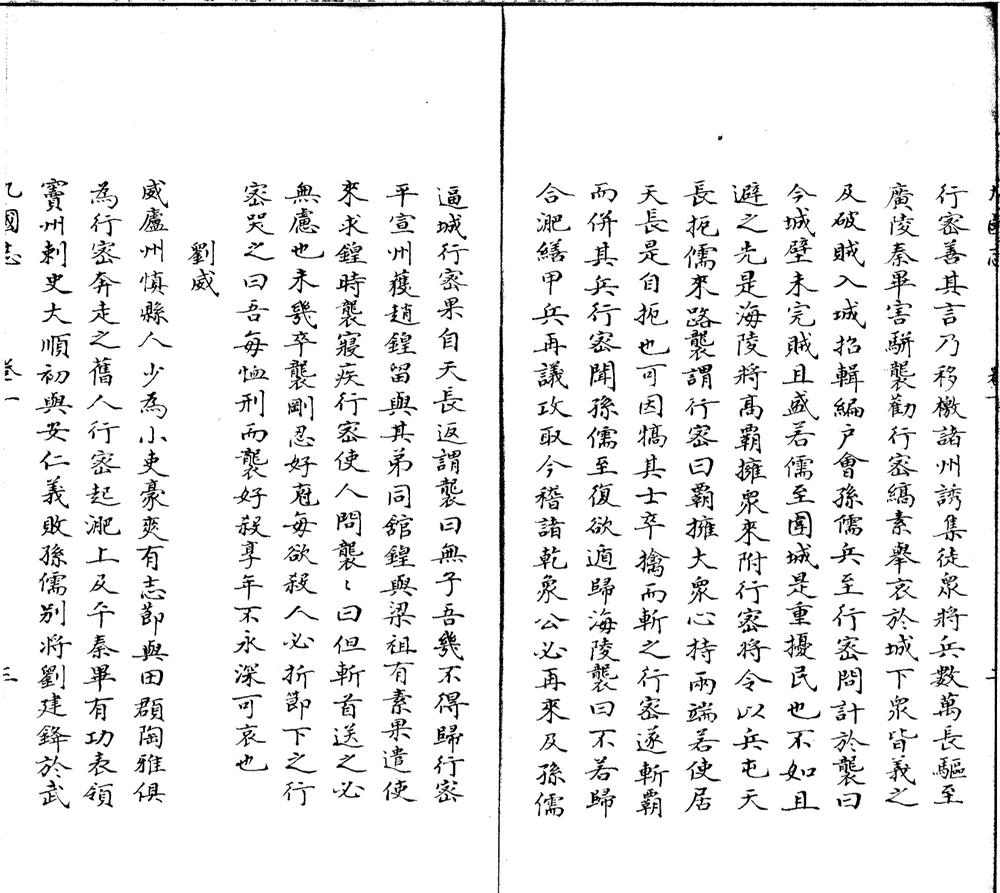 行密善其言乃移檄諸州誘集徒衆將兵數萬長驅至
廣陵秦畢害駢襲勸行密縞素舉哀於城下衆皆義之
及破賊入城招輯編户會孫儒兵至行密問計於襲曰
今城壁未完賊且盛若儒至圍城是重擾民也不如且
避之先是海陵將髙霸擁衆來附行密將令以兵屯天
長扼儒來路襲謂行密曰霸擁大衆心持兩端若使居
天長是自扼也可因犒其士卒擒而斬之行密遂斬霸
而併其兵行密聞孫儒至復欲遁歸海陵襲曰不若歸
合淝繕甲兵再議攻取今稽諸乾象公必再來及孫儒
逼城行密果自天長返謂襲曰無子吾幾不得歸行密
平宣州獲趙鍠留與其弟同舘鍠與梁祖有素果遣使
來求鍠時襲寢疾行密使人問襲〻曰但斬首送之必
無慮也未幾卒襲剛忍好寃每欲殺人必折節下之行
密哭之曰吾每恤刑而襲好殺享年不永深可哀也
劉威
威廬州慎縣人少為小吏豪爽有志節與田頵陶雅俱
為行密奔走之舊人行密起淝上及平秦畢有功表領
竇州刺史大順初與安仁義敗孫儒别將劉建鋒於武
九國志 卷一 三